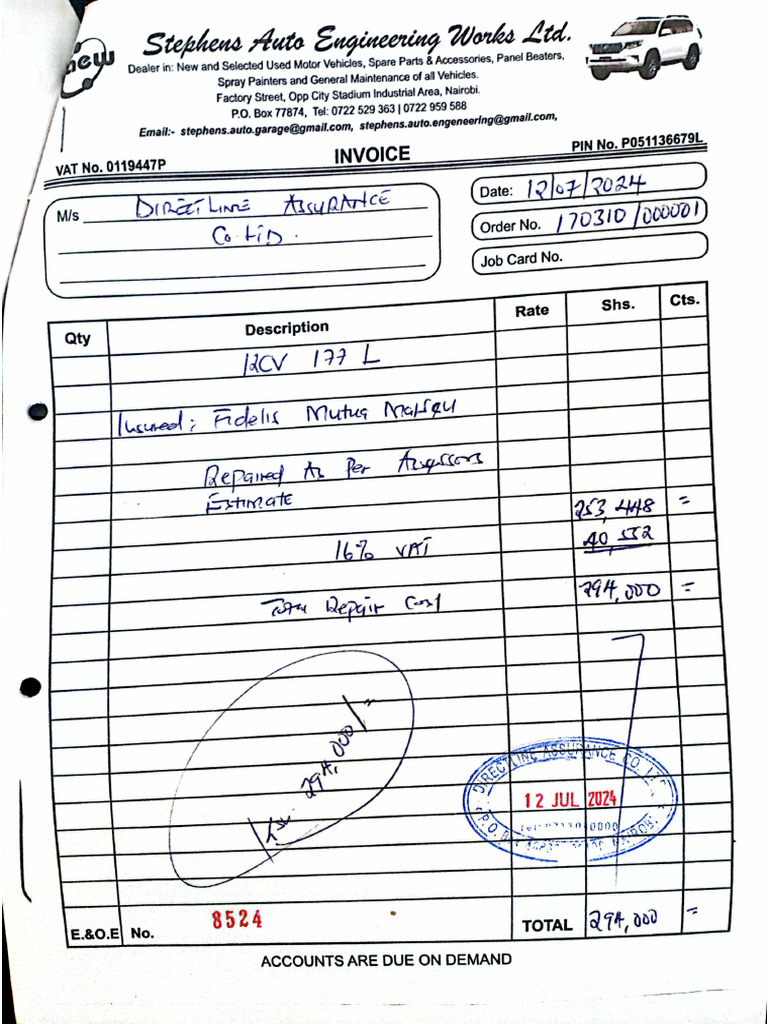 new
Stephens Auto Engineering Works Ltd.
Dealer in: New and Selected Used Motor Vehicles, Spare Parts & Accessories, Panel Beaters,
Spray Painters and General Maintenance of all Vehicles.
Factory Street, Opp City Stadium Industrial Area, Nairobi.
P.O. Box 77874, Tel: 0722 529 363 | 0722 959 588
Email:- stephens.auto.garage@gmail.com, stephens.auto.engeneering@gmail.com,
VAT No. 0119447P INVOICE PIN No. P051136679L
M/s DIRECTLINE ASSURANCE
Co. LTD.
Date: 12/07/2024
Order No. 170310/000001
Job Card No.
Qty Description Rate Shs. Cts.
KCV 177 L
Insured: Fidelis Mutua
Repaired As Per Assessors
Estimate 253,448 =
16% VAT 40,552
Total Repair Cost 294,000 =
Ksh. 294,000/=
DIRECTLINE ASSURANCE CO. LTD.
12 JUL 2024
P.O. NAIROBI
E.&O.E No. 8524 TOTAL 294,000 =
ACCOUNTS ARE DUE ON DEMAND